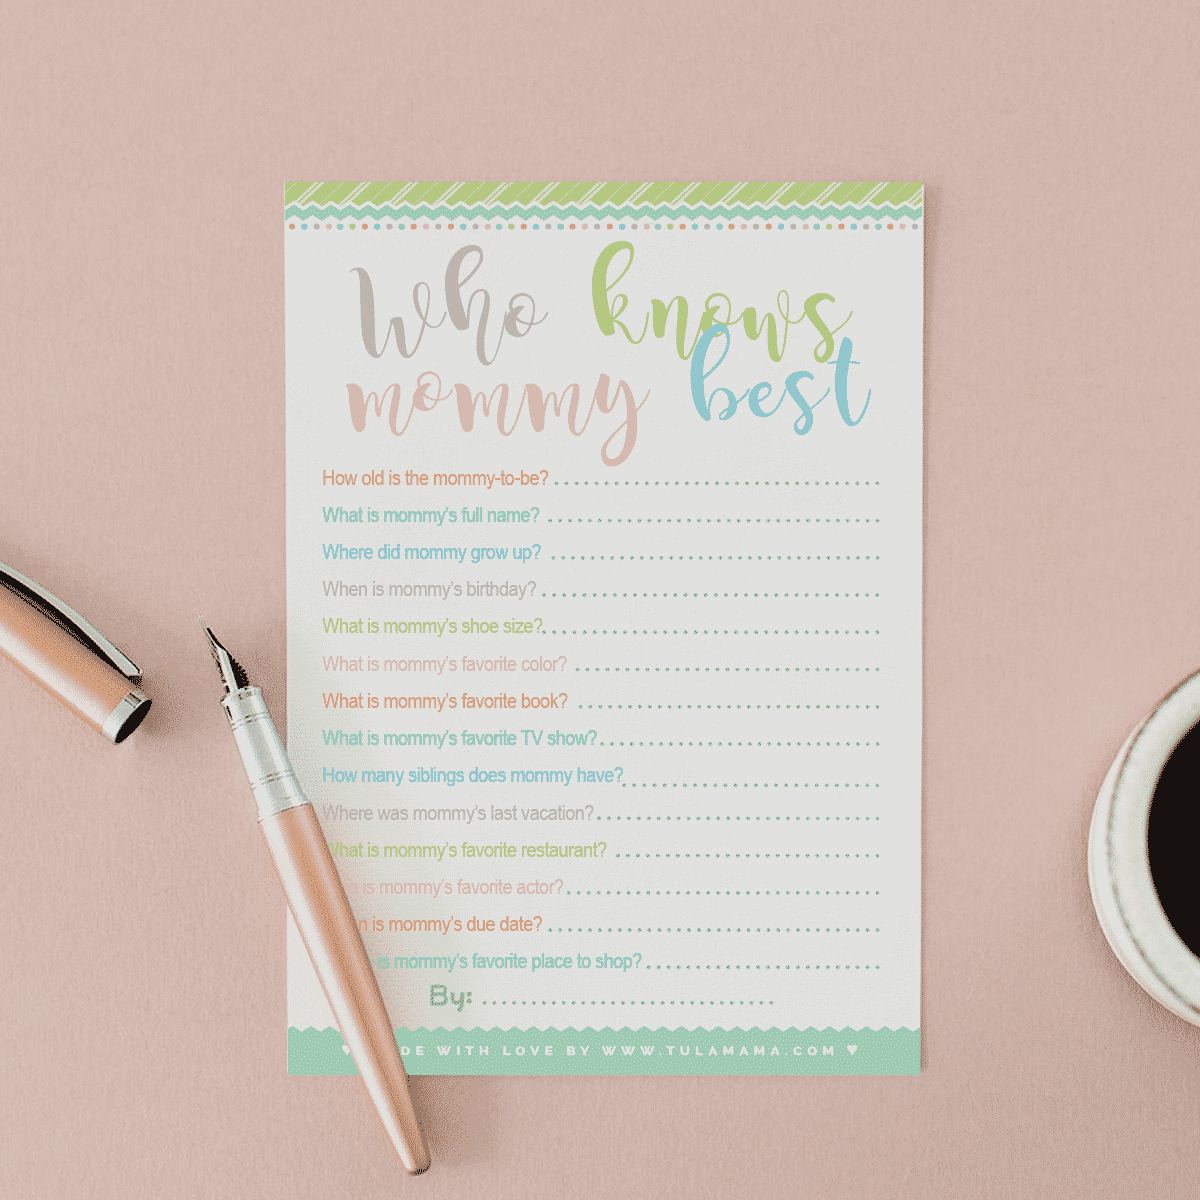 Who knows
mommy best
How old is the mommy-to-be?
What is mommy's full name?
Where did mommy grow up?
When is mommy's birthday?
What is mommy's shoe size?
What is mommy's favorite color?
What is mommy's favorite book?
What is mommy's favorite TV show?
How many siblings does mommy have?
Where was mommy's last vacation?
What is mommy's favorite restaurant?
is mommy's favorite actor?
is mommy's due date?
is mommy's favorite place to shop?
By:
WITH LOVE BY WWW.TULAMAMA.COM